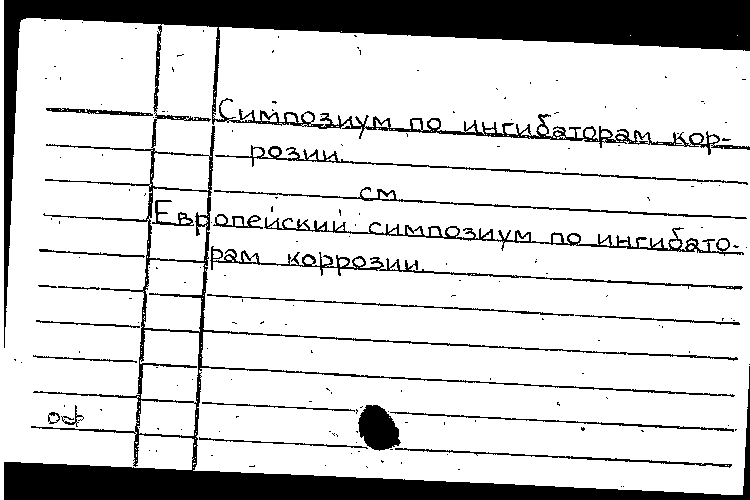 Симпозиум по ингибаторам кор-
розии.
см.
Европейский симпозиум по ингибато-
рам коррозии.
оф